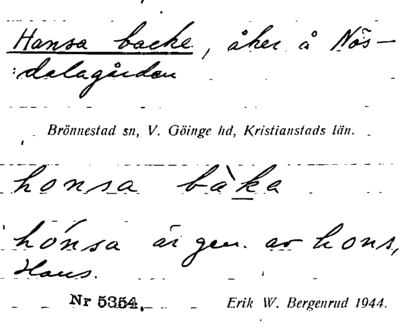 Hansa backe, åker å Nös-
dalagården
Brönnestad sn, V. Göinge hd, Kristianstads län.
honsa bàka
hónsa är gen. av hons,
Hans.
Nr 5354. Erik W. Bergenrud 1944.